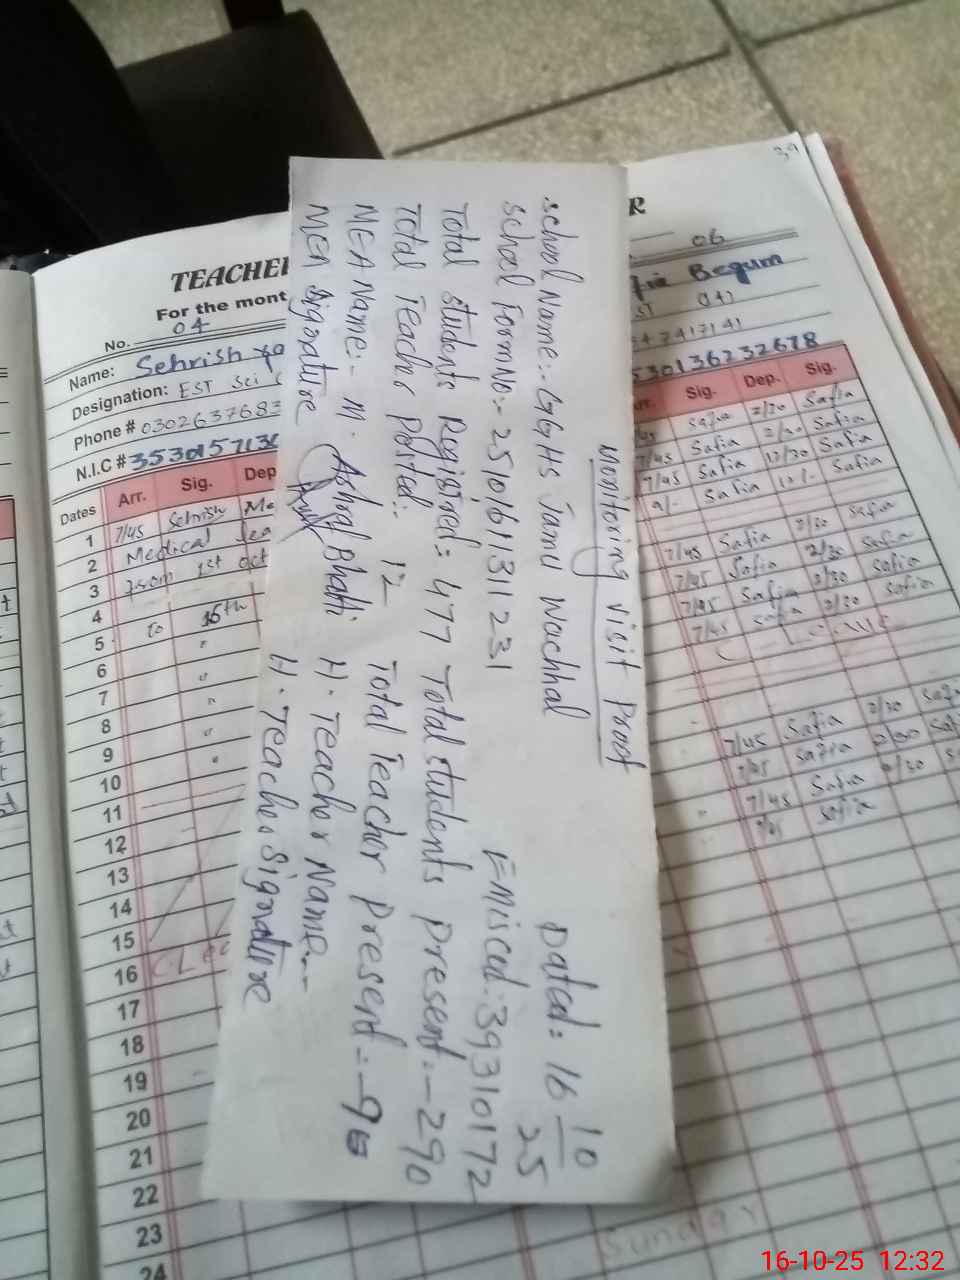 Monitoring visit Proof
School Name:- GGHS Jamu Wachhal Dated: 16/10/25
School Form No:- 2510161131 1231 Emiscod: 39310172
Total students Registred: 477 Total students present:- 290
Total Teacher Posted: 12 Total Teacher present:- 9
MEA Name:- M. Ashraf Bhatti H. Teacher Name:--
MEA Signature H. Teacher Signature
TEACHE
For the mont
No. 04
Name: Sehrish
Designation: EST Sci
Phone # 0302637683
N.I.C #
Dates Arr. Sig. Dep
1 7/45 Sehrish
2 Medical lea
3 from 1st oct
4
5 to 15th
6 "
7 "
8 "
9 "
10 "
11
12
13
14
15
16
17
18
19
20
21
22
23
24
39
R
06
Begum
530136232678
Sig. Dep. Sig.
7/45 Safia 2/30 Safia
7/45 Safia 2/30 Safia
7/45 Safia 12/30 Safia
Safia Safia
7/45 Safia 2/30 Safia
7/45 Safia 2/30 Safia
7/45 Safia 2/30 Safia
7/45 Safia 2/30 Safia
7/45 Safia 2/30
7/45 Safia 2/30
7/45 Safia 2/30
7/45 Safia
Sunday
16-10-25 12:32